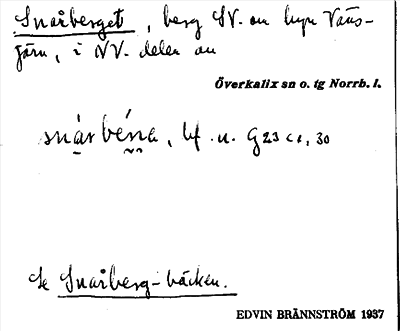 Snårberget, berg SV. om byn Väns-
järv, i NV. delen av
Överkalix sn o. tg Norrb. l.
snár béna, bf. n. G23 c1, 30
Se Snårberg-bäcken.
EDVIN BRÄNNSTRÖM 1937